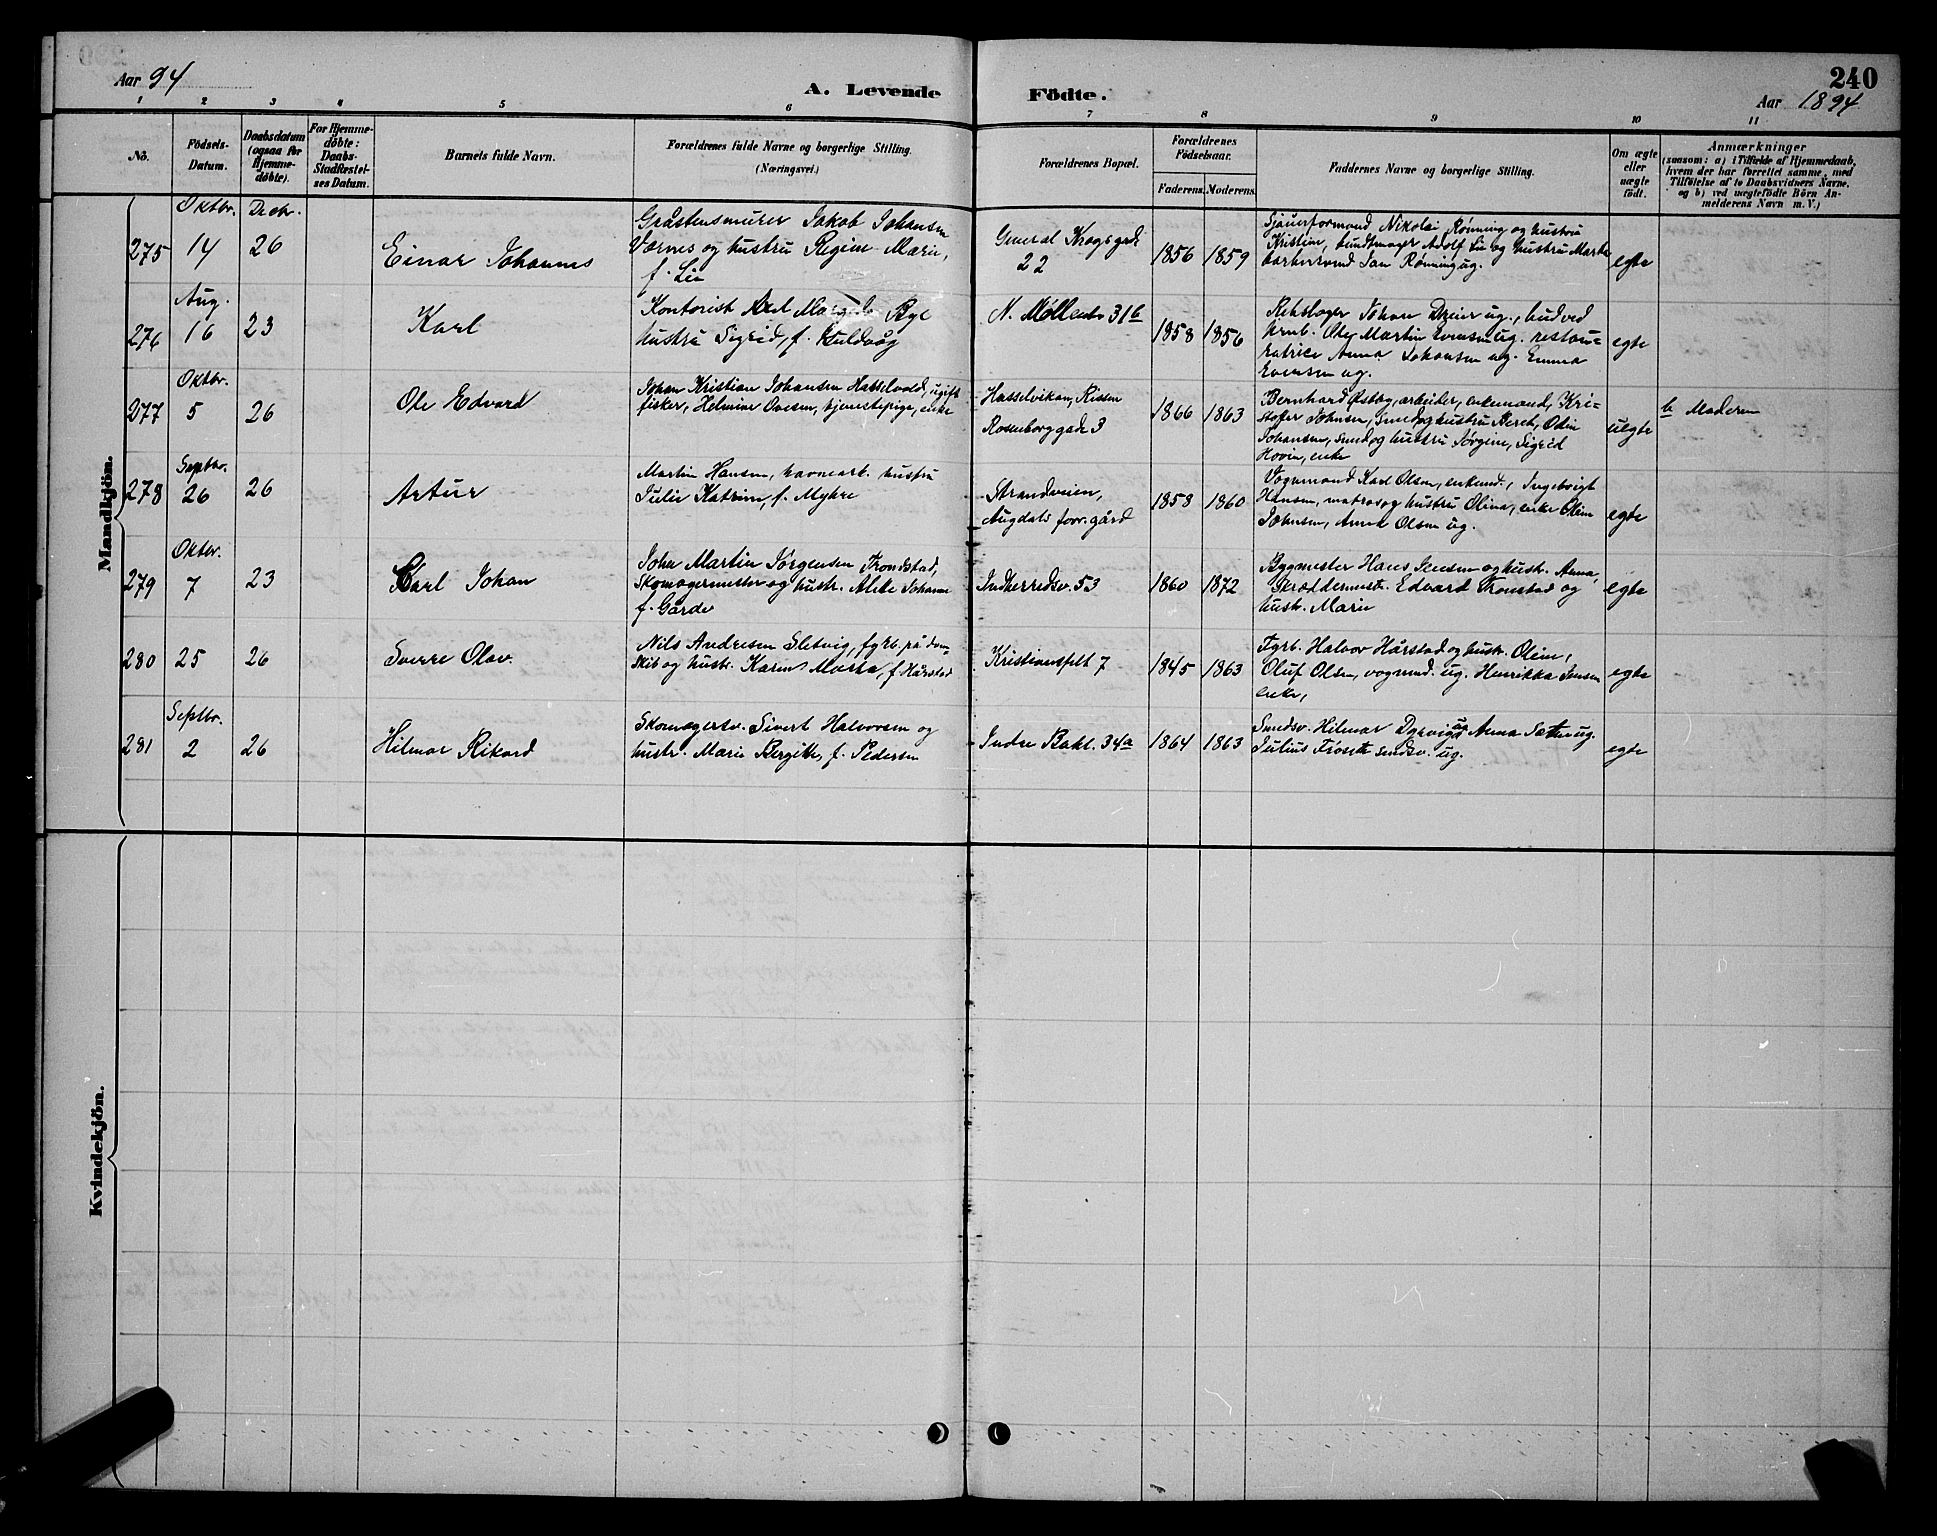 Aar 94
A. Levende Födte.
240
Aar 1894.
1 2 3 4 5 6 7 8 9 10 11
No.
Födsels-Datum.
Daabsdatum (ogsaa for Hjemme-döbte).
For Hjemme-döbte: Daabs-Stadfæstel-ses Datum.
Barnets fulde Navn.
Forældrenes fulde Navne og borgerlige Stilling.
(Næringsvei.)
Forældrenes Bopæl.
Forældrenes Födselsaar.
Faderens. Moderens.
Faddernes Navne og borgerlige Stilling.
Om ægte eller uægte födt.
Anmærkninger
(saasom: a) i Tilfælde af Hjemmedaab,
hvem der har forrettet samme, med
Tilföielse af to Daabsvidners Navne,
og b) ved uægtefödte Börn An-
melderens Navn m. V.)
Mandkjön.
Oktbr. Decbr.
275 14 26 Einar Johannes
Gråstensmurer Jakob Johansen
Værnes og hustru Regine Marie,
f. Lie
General Krogsgade
22
1856 1859
Sjauerformand Nikolai Rønning og hustru
Kristine, bundtmager Adolf Lie og hustru Marta
Jan Rønning ug.
egte
Aug.
276 16 23 Karl
Kontorist
hustru Sigrid, f. Kuldvåg
N. Møllenb. 31b
1858 1856
Rebslager Johan Dreier ug., budved
Ole Martin Evensen ug. restau-
ratrice Anna Johansen ug. Emma
Evensen ug.
egte
Oktbr.
277 5 26 Ole Edvard
Johan Kristian Johansen Hasselvold, ugift
fisker, Helmine Ovesen, tjenestepige, enke
Hasselviken, Rissen
Rosenborggade 3
1866 1863
Bernhard Østby, arbeider, enkemand, Kri-
stofer Johnsen, smed og hustru Berch, Odin
Johansen, smed og hustru Jørgine, Sigrid
Hovin, enke
uegte
b Moderen
Septbr.
278 26 26 Artur
Martin Hansen, havnearb. hustru
Julie Katrine, f. Myhre
Strandveien,
Augdals forr. gård
1858 1860
Vognmand Karl Olsen, enkemd., Ingebrigt
Hansen, matros og hustru Olina, enke Oline
Johnsen, Anna Olsen ug.
egte
Oktbr.
279 7 23 Karl Johan
John Martin Jørgensen Trondstad,
Skomagermester og hustr. Alette Johanne
f. Gårde
Indherredsv. 53
1860 1872
Bygmester Hans Jensen og hustr. Anna,
Skræddermestr. Edvard Tronstad og
hustr. Marie
egte
280 25 26 Sverre Olav.
Nils Andresen Sletvig, fyrb. på dam-
skib og hustr. Karen Marta, f. Hårstad
Kristiansfelt 7
1845 1863
Fyrb. Halvor Hårstad og hustr. Oline,
Oluf Olsen, vognmd. ug. Henrikka Jensen
enke,
egte
Septbr.
281 2 26 Hilmar Rikard
Skomagersv. Sivert Halvorsen og
hustr. Marie Bergitte, f. Pedersen
Indre Bakl. 34a
1864 1863
Smedsv. Hilmar Dyrvig ug Anna Sætter ug.
Julius Fröseth smedsv. ug.
egte
Kvindekjön.